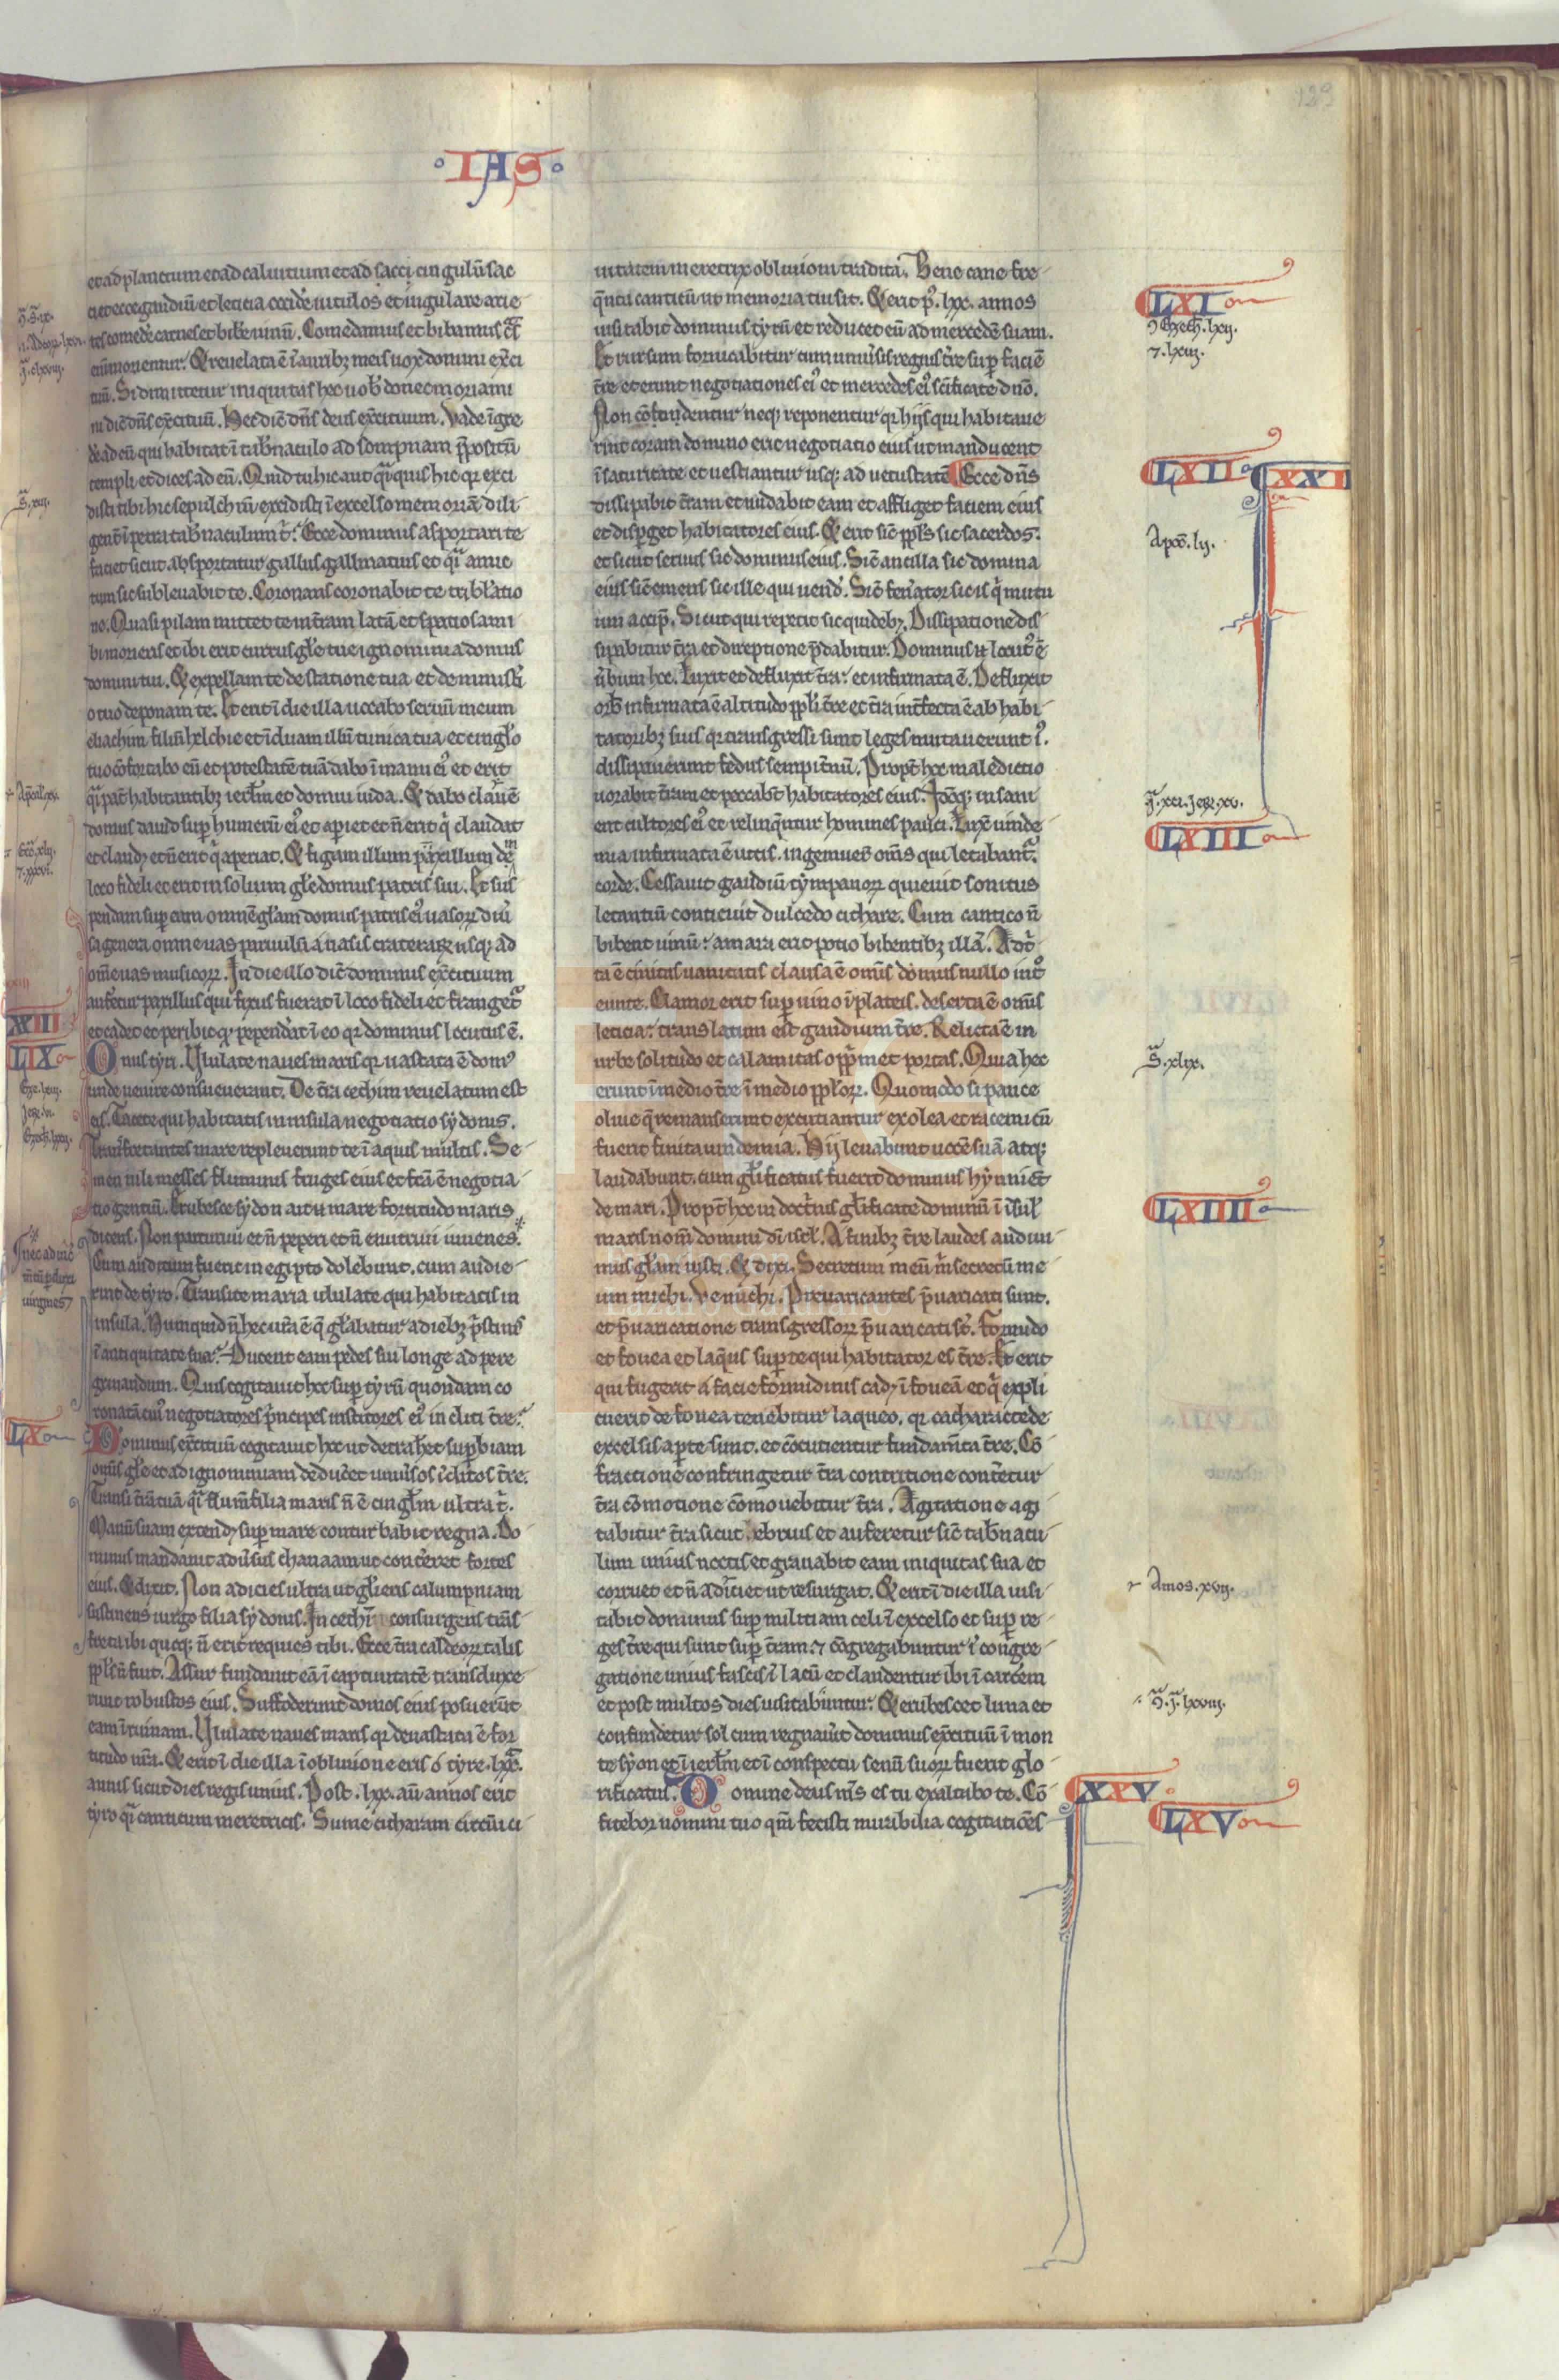 129
IAS
et ad planctum et ad caluitium et ad sacci cingulū sac
ci et ecce gaudiū et leticia occidē uitulos et iugulare arie
tes comedē carnes et bibē uinū. Comedamus et bibamus cͣs
enī moriemur. Et reuelata ē ī aurib; meis uox domini exci
tuū. Si dimittetur iniquitas hec uob̄ donec moriami
ni dic̄ dn̄s excituū. Hec dic̄ dn̄s deus excituum. Vade īgre
dē ad eū qui habitat ī tab̄naculo ad sompnam p̄positū
templi et dices ad eū. Quid tu hic aut qͣi quis hic qꝛ exci
disti tibi hic sepulchrū excidisti ī excelso memoriā dili
gent̄ ī petra tab̄naculum t̄. Ecce dominus asportari te
faciet sicut absportatur gallus gallinatius et qͣi amic
tum sic subleuabit te. Coronans coronabit te tribl̄atio
ne. Quasi pilam mittet te in t̄ram latā et spatiosam i
bi morieris et ibi erit currus gl̄e tue ignominia domus
domini tui. Et expellam te de statione tua et de ministi
o tuo deponam te. Et erit ī die illa uocabo seruū meum
eliachim filiū helchie et īduam illū tunica tua et cingl̄o
tuo cōfortabo eū et potestatē tuā dabo ī manu ei⁹ et erit
qͣi pat̄ habitantib; ierl̄m et domui iuda. Et dabo clauē
domus dauid sup humerū ei⁹ et apiet et n̄ erit q̇ claudat
et claud; et n̄ erit q̇ aperiat. Et figam illum paxillum ī
loco fideli et erit in solium gl̄e domus patris sui. Et sus
pendam sup eum omnē gl̄am domus patris ei⁹ uasoꝝ diū
sa genera omne uas paruulū a uasis crateraꝝ usq; ad
om̄e uas musicoꝝ. In die illo dic̄ dominus excituum
aufetur paxillus qui fixus fuerat ī loco fideli et frangetͬ
et cadet et peribit qͦ pependat ī eo qꝛ dominus locutus ē.
Onus tyri. Ululate naues maris qꝛ uastata ē dom⁹
unde uenire consueuerant. De t̄ra cechim reuelatum est
eis. Tacete qui habitatis in insula negotiatio sydonis.
Transfretantes mare repleuerunt te ī aquis multis. Se
men nili messes fluminis fruges eius et fc̄a ē negotia
tio gentiū. Erubesce sydon ait n̄ mare fortitudo maris
dicens. Non parturiui et n̄ peperi et n̄ enutriui iuuenes.
Cum auditum fuerit in egipto dolebunt. cum audie
rint de tyro. Transite maria ululate qui habitatis in
insula. Numquid n̄ hec ur̄a ē q̄ gl̄abatur a dieb; p̄stinis
ī antiquitate sua. Ducent eam pedes sui longe ad pere
grinandum. Quis cogitauit hec sup tyrū quondam co
ronatā cui⁹ negotiatores p̄ncipes institores ei⁹ incliti t̄re.
Dominus excituū cogitauit hec ut detrahet supbiam
om̄is gl̄e et ad ignominiam deducet uniūsos īclitos t̄re.
Transi t̄rā tuā qͣi flum̄ filia maris n̄ ē cingl̄m ultra t̄.
Manū suam extend; sup mare conturbabit regna. Do
minus mandauit adūsus chanaam ut cont̄eret fortes
eius. Et dixit. Non adicies ultra ut gl̄ieris calumpniam
sustinens uirgo filia sydonis. In cechī consurgens t̄ns
freta ibi quoq; n̄ erit requies tibi. Ecce t̄ra caldeoꝝ talis
ppl̄s n̄ fuit. Assur fundauit eā ī captiuitatē transduxe
runt robustos eius. Suffoderunt domos eius posuerūt
eam ī ruinam. Ululate naues maris qꝛ deuastata ē for
titudo ur̄a. Et erit ī die illa ī obliuione eris ó tyre. lxx.
annis sicut dies regis unius. Post. lxx. aū annos erit
tyro qͣi canticum meretricis. Sume citharam circūi ci
uitatem meretrix obliuioni tradita. Bene cane fre
q̄nta canticū ut memoria tui sit. Et erit p⁹. lxx. annos
uisitabit dominus tyrū et reducet eū ad mercedē suam.
Et rursum fornicabitur cum uniūsis regnis t̄re sup faciē
t̄re et erunt negotiationes ei⁹ et mercedes ei⁹ sc̄ificate dn̄o.
Non cōdendentur neq; reponentur qꝛ hijs qui habitaue
rint coram domino erit negotiatio eius ut manducent
ī saturitate et uestiantur usq; ad uetustatē Ecce dn̄s
dissipabit t̄ram et nudabit eam et affliget faciem eius
et disp̄get habitatores eius. Et erit sic̄ ppl̄s sic sacerdos.
et sicut seruus sic dominus eius. Sic̄ ancilla sic domina
eius sic̄ emens sic ille qui uend̄. Sic̄ fenāator sic is q̇ mutu
um accip̄. Sicut qui repetit sic qui deb;. Dissipatione dis
sipabitur t̄ra et direptione p̄dabitur. Dominus n̄ locut⁹ ē
ūbum hoc. Luxit et defluxit t̄ra. et infirmata ē. Defluxit
orb̄ infirmata ē altitudo ppl̄i t̄re et t̄ra int̄fecta ē ab habi
tatorib; suis qꝛ transgressi sunt leges mutauerunt i⁹.
dissipauerunt fedus sempit̄nū. Propt̄ hoc maledictio
uorabit t̄ram et peccabt̄ habitatores eius. Idōq; insani
ent cultores ei⁹ et relinq̄ntur homines pauci. Luxt̄ uinde
mia infirmata ē uitis. ingemuer̄ om̄s qui letabantͬ
corde. Cessauit gaudiū tympanoꝝ quieuit sonitus
letantiū conticuit dulcedo cithare. Cum cantico n̄
bibent uinū. amara erit potio bibentib; illā. Adt̄
ta ē ciuitas uanitatis clausa ē om̄is domus nullo int̄
eunte. Clamor erit sup uino ī plateis. deserta ē om̄is
leticia. translatum est gaudium t̄re. Relicta ē in
urbe solitudo et calamitas opp̄met portas. Quia hec
erunt ī medio t̄re ī medio ppl̄oꝝ. Quomodo si pauce
oliue q̄ remanserunt excutiantur ex olea et racemi cū
fuerit finita uindemia. Hij leuabunt uocē suā atq;
laudabunt. cum gl̄ificatus fuerit dominus hynniēt
de mari. Propt̄ hoc in doctrinis gl̄ificate dominū ī īsul̄
maris nom̄ domini dī isrl̄. A finib; t̄re laudes audiui
mus gl̄am iusti. Et dixi. Secretum meū m̄ secretū me
um michi. Ve michi. Preuaricantes p̄uaricati sunt.
et p̄uaricatione transgressoꝝ p̄uaricati st̄. Formido
et fouea et laq̄us sup te qui habitator es t̄re. Et erit
qui fugerit a facie formidinis cad; ī foueā et q̇ expli
cuerit de fouea tenebitur laqueo. qꝛ catharacte de
excelsis aperte sunt. et cōcutientur fundam̄ta t̄re. Cō
fractione confringetur t̄ra contritione cont̄etur
t̄ra cōmotione cōmouebitur t̄ra. Agitatione agi
tabitur t̄ra sicut ebrius et auferetur sic̄ tab̄nacu
lum unius noctis et grauabit eam iniquitas sua et
corruet et n̄ adiciet ut resurgat. Et erit ī die illa uisi
tabit dominus sup militiam celi ī excelso et sup re
ges t̄re qui sunt sup t̄ram. ⁊ cōgregabuntur ī congre
gatione unius fascis ī lacū et claudentur ibi ī carcēm
et post multos dies uisitabuntur. Et erubescet luna et
confundetur sol cum regnaūit dominus excituū ī mon
te syon et ī ierl̄m et ī conspectu senū suoꝝ fuerit glo
rificatus. Domine deus m̄s es tu exaltabo te. Cō
fitebor nomini tuo qm̄ fecisti miribilia cogitatiōes
XIII
LIX
LX
nec aduc̄
uirgines
LXI
Ezech. lxij.
⁊. lxiij.
LXII
XXI
Apoc̄. lij.
LXIII
S. xlix.
LXIIII
Amos. xvij.
XXV
LXV
Fundación
Lázaro Galdiano